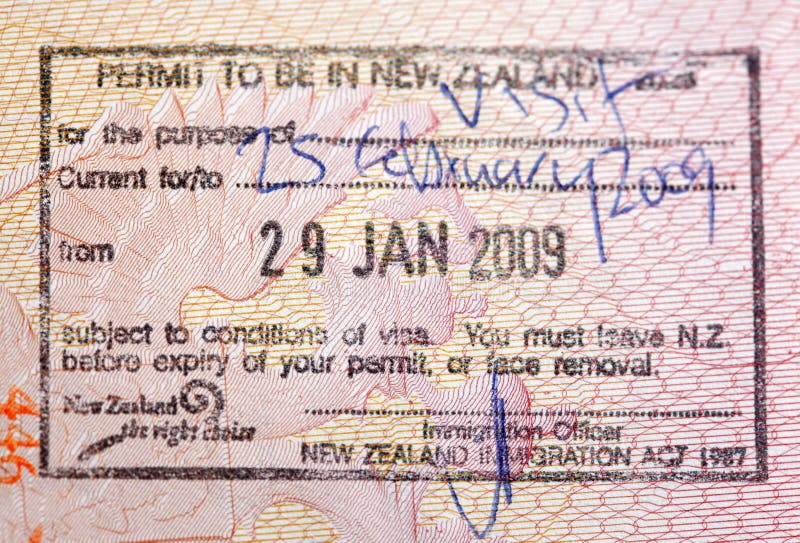 PERMIT TO BE IN NEW ZEALAND
for the purpose of Visit
Current for/to 25 February 2009
from 29 JAN 2009
subject to conditions of visa. You must leave N.Z.
before expiry of your permit, or face removal.
New Zealand
the right choice
Immigration Officer
NEW ZEALAND IMMIGRATION ACT 1987
446